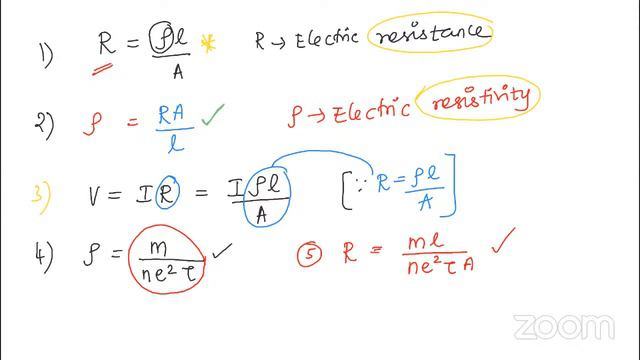 1) R = ρl/A * R → Electric resistance
2) ρ = RA/l ✓ ρ → Electric resistivity
3) V = IR = Iρl/A [∵ R = ρl/A]
4) ρ = m/ne²τ ✓ ⑤ R = ml/ne²τA ✓
zoom